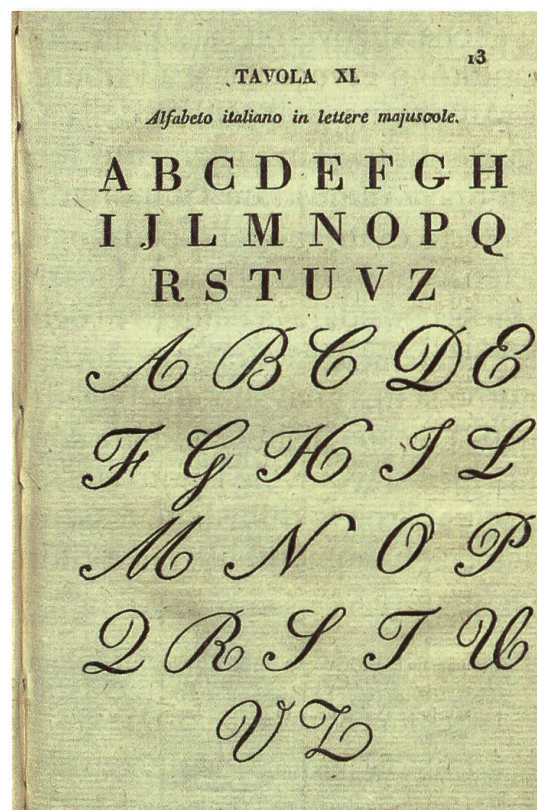 13
TAVOLA XI.
Alfabeto italiano in lettere majuscole.
A B C D E F G H
I J L M N O P Q
R S T U V Z
A B C D E
F G H I L
M N O P
Q R S T U
V Z